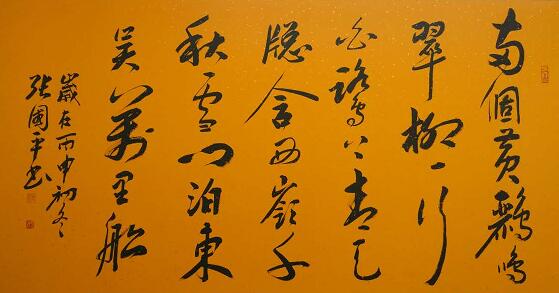 两個黄鸝鳴
翠柳一行
白鷺上青天
窗含西嶺千
秋雪門泊東
吴萬里船
歲在丙申初冬
張國平书